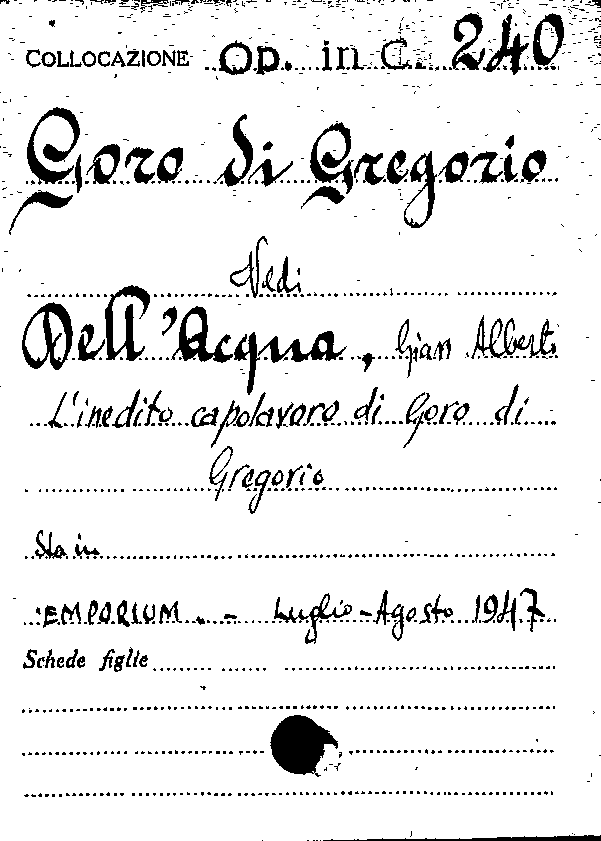 COLLOCAZIONE Op. in C. 240
Goro di Gregorio
Vedi
Dell'Acqua, Gian Alberto
L'inedito capolavoro di Goro di
Gregorio
Sta in
:EMPORIUM. - Luglio-Agosto 1947
Schede figlie